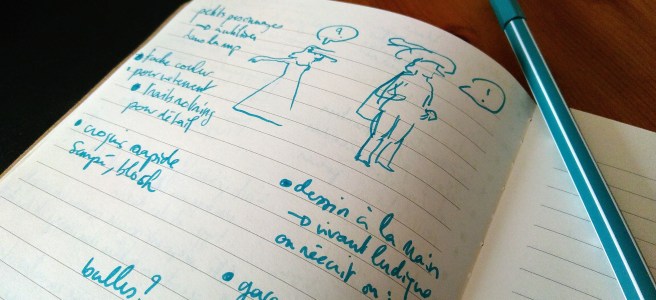 petits personnages
→ à utiliser
dans la map
?
!
• tache couleur
• pour vêtement
• traits rotring
pour détail
• croquis rapide
Sempé, blosh
• dessin à la main
→ vivant ludique
on réécrit
bulles ?